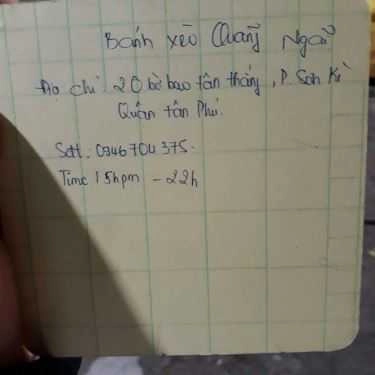 Bánh xèo Quảng Ngãi
Địa chỉ 20 bờ bao tân thắng, P. Sơn Kì
Quận tân Phú.
Sđt: 0946704375.
Time 15hpm - 22h